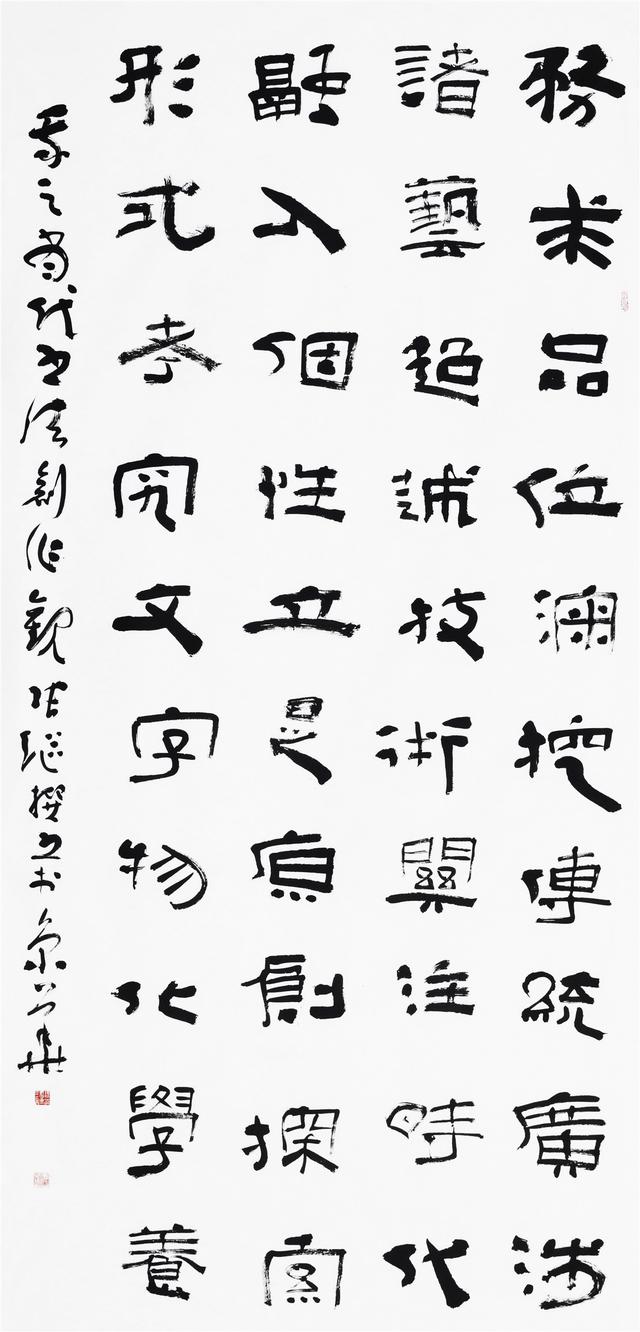 務求品位深挖傳統廣涉
諸藝超越技術關注時代
融入個性立足原創探索
形式考究文字物化學養
我之當代書法創作觀張繼撰書於京華